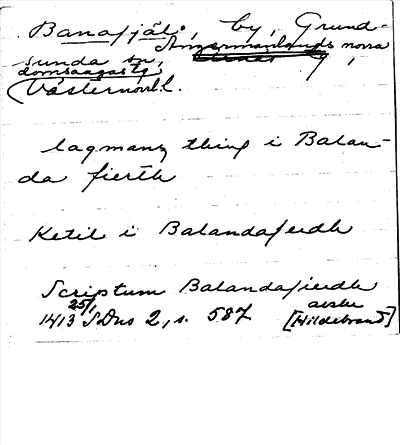 Banafjäl, by, Grund-
sunda sn, Ångermanlands norra
domsagas tg,
Västernorrl. l.
lagmanz thing i Balan-
da fierth
Ketil i Balandafierdh
Scriptum Balandafierdh
25/1 avskr
1413 SDns 2, s. 587 [Hildebrand]